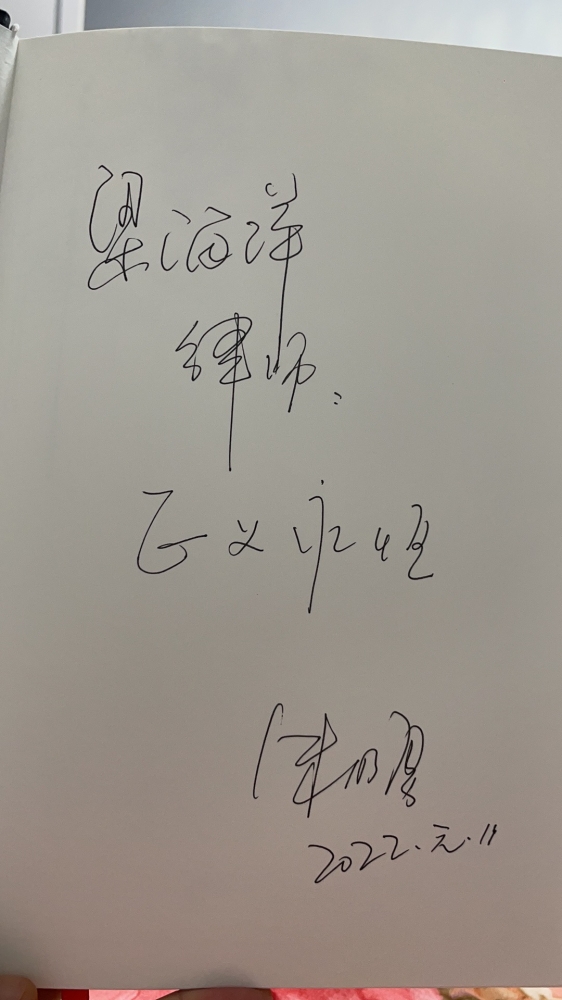 梁海洋
律师：
正义永恒
2022.元.11